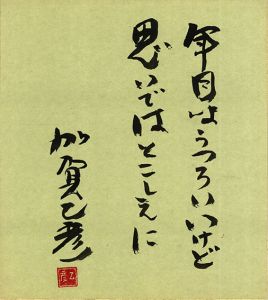 年月はうつろいいけど
思いではとこしえに
加賀乙彦
乙彦